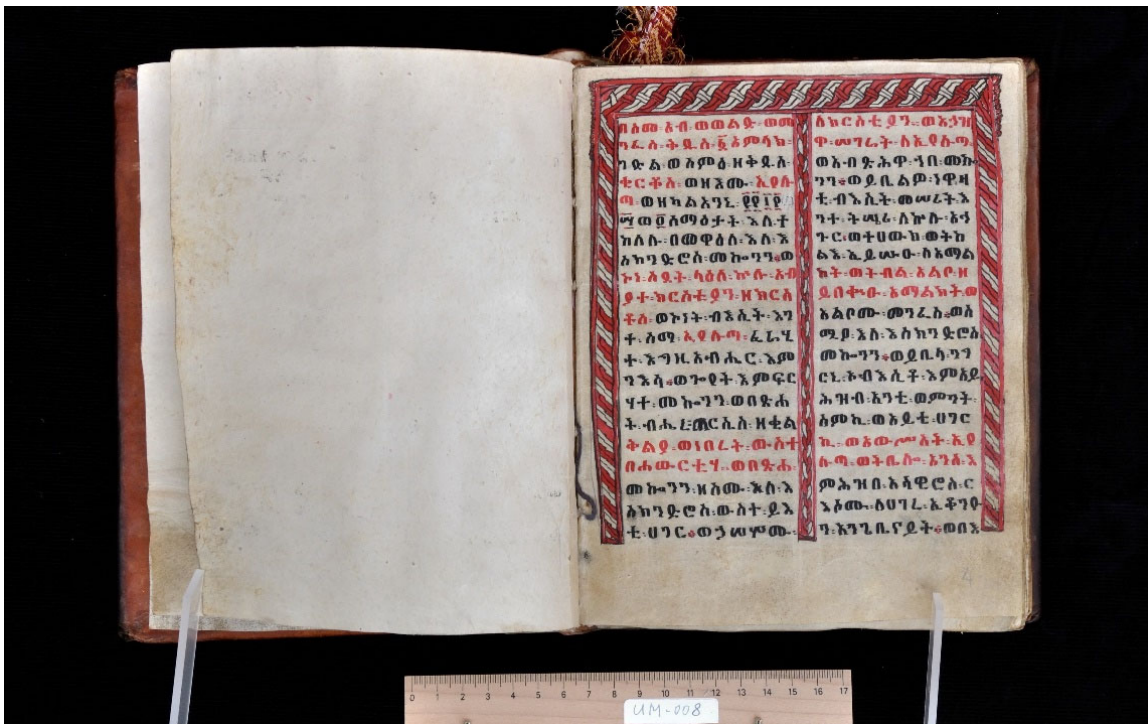 በስመ፡ አብ፡ ወወልድ፡ ወመ
ንፈስ፡ ቅዱስ፡ ፩አምላክ፡
ገድል፡ ወስምዕ፡ ዘቅዱስ፡
ቂርቆስ፡ ወዘእሙ፡ ኢየሉ
ጣ፡ ወዘካልአንኒ፡
ወ፬ሰማዕታት፡ እለ፡ ተ
ከለሉ፡ በመዋዕለ፡ እለ፡ እ
ስክንድሮስ፡ መኰንን። ወ
ኮነ፡ ስደት፡ ላዕለ፡ ኵሉ፡ አብ
ያተ፡ ክርስቲያን፡ ዘክርስ
ቶስ፡ ወኮነት፡ ብእሲት፡ እን
ተ፡ ስማ፡ ኢየሉጣ፡ ፈራሂ
ተ፡ እግዚአብሔር፡ እም
ንእሳ። ወጐየት፡ እምፍር
ሃተ፡ መኰንን፡ ወበጽሐ
ት፡ ብሔረ፡ ጠርሴስ፡ ዘቂል
ቅልያ፡ ወነበረት፡ ውስተ
በሐውርቲሃ፡ ወበጽሐ፡
መኰንን፡ ዘስሙ፡ እለ፡ እ
ስክንድሮስ፡ ውስተ፡ ይእ
ቲ፡ ሀገር። ወኃሠሦሙ፡
ለክርስቲያን፡ ወአኃዝ
ዋ፡ መገራት፡ ለኢየሉጣ፡
ወአብጽሕዋ፡ ኀበ፡ መኰ
ንን። ወይቤልዎ፡ ነዋ፡ ዛ
ቲ፡ ብእሲት፡ መሠሪት፡ እ
ንተ፡ ትሜሪ፡ ለኵሉ፡ አኅ
ጉር፡ ወተሀውክ፡ ወትከ
ልእ፡ ኢይሡዑ፡ ለአማል
ክት፡ ወትብል፡ አልቦ፡ ዘ
ይበቍዑ፡ አማልክት፡ ወ
አልቦሙ፡ መንፈስ። ወሰ
ሚዖ፡ እለ፡ እስክንድሮስ
መኰንን። ወይቤላ፡ ንግ
ርኒ፡ ኦብእሲቶ፡ እምአይ
ሕዝብ፡ አንቲ፡ ወምንት፡
ስምኪ፡ ወአይቲ፡ ሀገር
ኪ፡ ወአውሥአት፡ ኢየ
ሉጣ፡ ወትቤሎ፡ አንሰ፡ እ
ምሕዝበ፡
እሙ፡ ለሀገረ፡ ኢቆንዮ
ን፡ አንጌቤናይት። ወበእ
4
0 1 2 3 4 5 6 7 8 9 10 11 12 13 14 15 16 17
UM-008